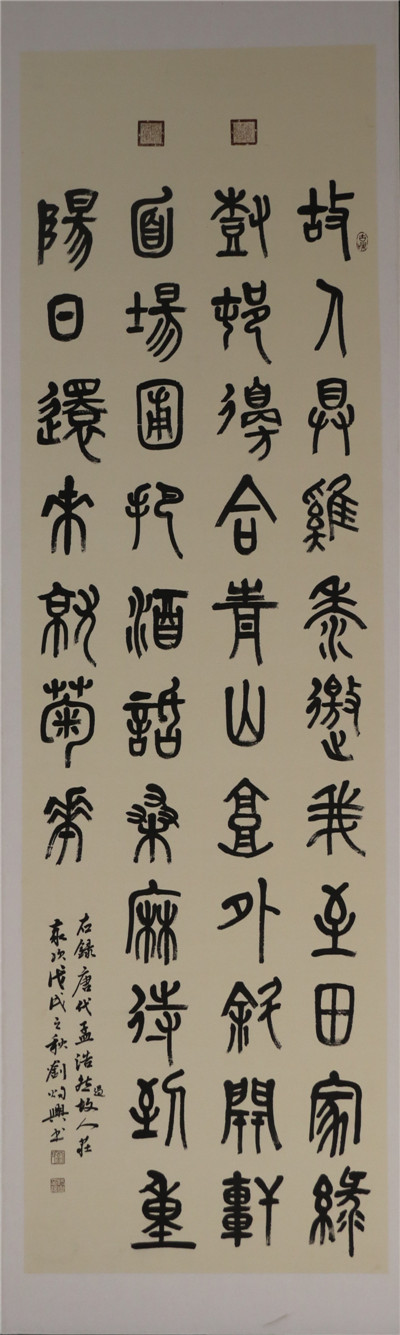 故人具雞黍邀我至田家緑
樹邨邊合青山郭外斜開軒
面場圃把酒話桑麻待到重
陽日還來就菊花
右録唐代孟浩然過故人莊
歲次戊戌之秋劉炯興书